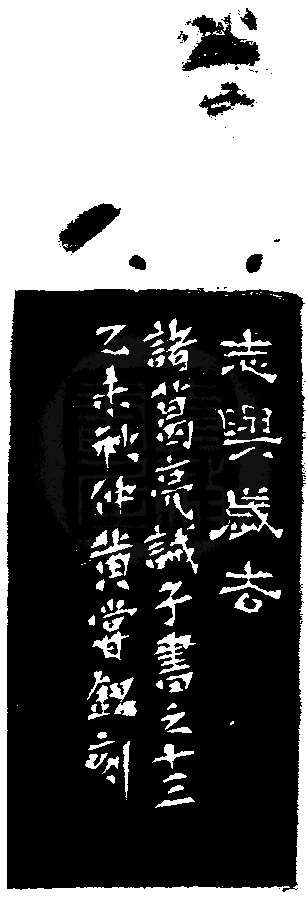 志與歲去
諸葛亮誡子書之十三
乙未秋仲黄嘗銘刻